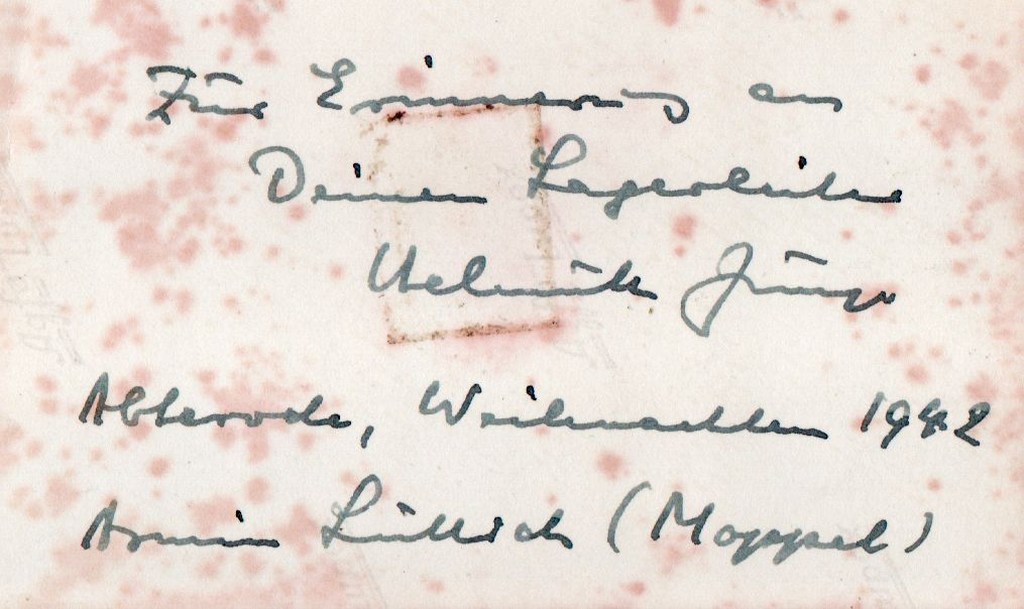 Zur Erinnerung an
Deinen Lagerleiter
Helmuth
Abterode, Weihnachten 1942
Armin Lüttich (Moppel)